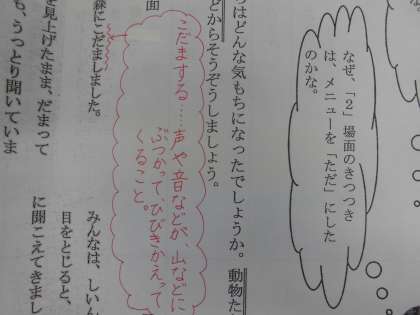 な。
なぜ、「2」場面のきつつき
は、メニューを「ただ」にした
のかな。
ちはどんな気もちになったでしょうか。動物た
どからそうぞうしましょう。
こだまする……声や音などが、山などに
ぶつかって、ひびきかえって
くること。
面
森にこだましました。
を見上げたまま、だまって
も、うっとり聞いていま
みんなは、しいん
目をとじると、
に聞こえてきまし